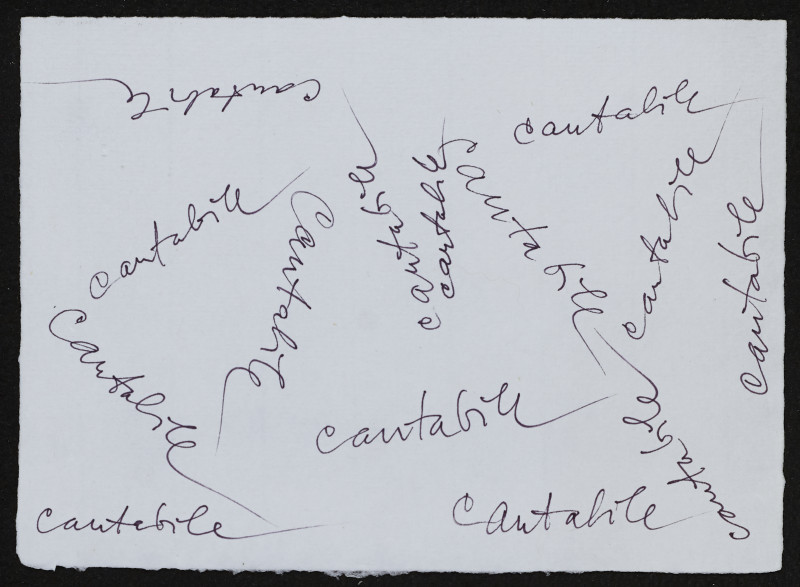 cantabile
cantabile
cantabile
cantabile
cantabile
cantabile
cantabile
cantabile
cantabile
cantabile
cantabile
cantabile
cantabile
cantabile